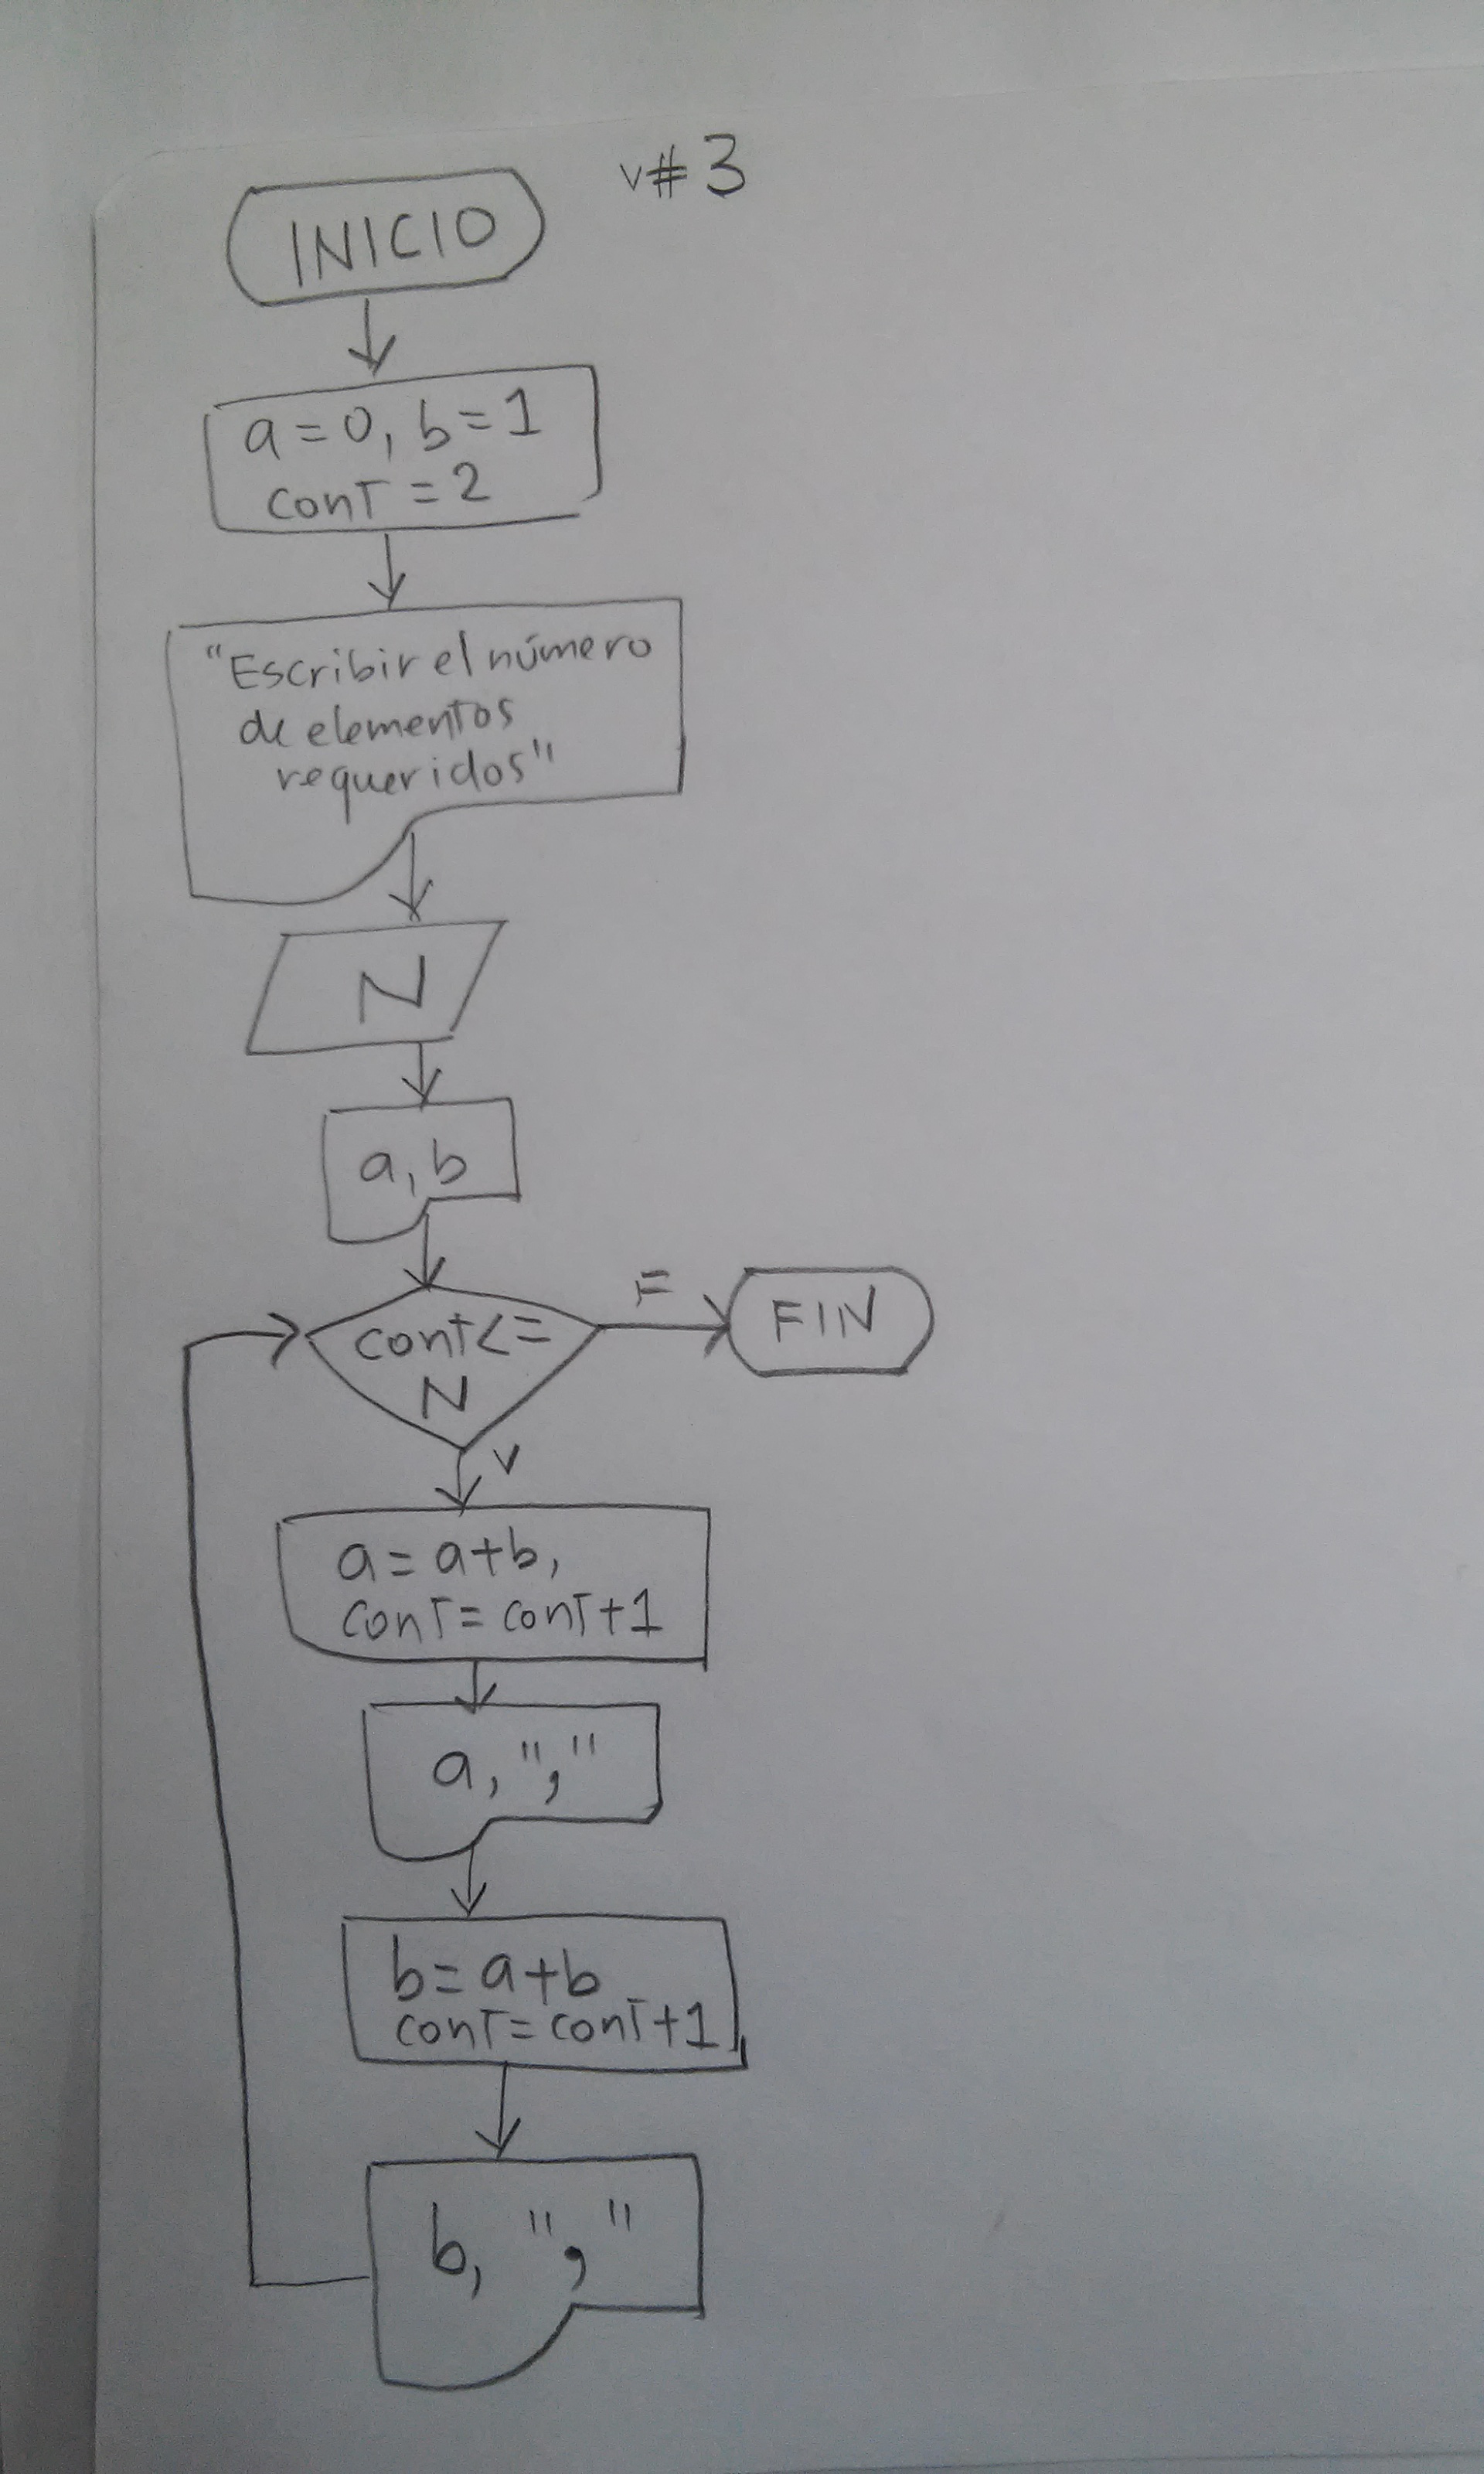 v#3
INICIO
a=0, b=1
cont=2
"Escribir el número
de elementos
requeridos"
N
a, b
cont<=
N
F
FIN
V
a=a+b,
cont=cont+1
a, ","
b=a+b
cont=cont+1
b, ","